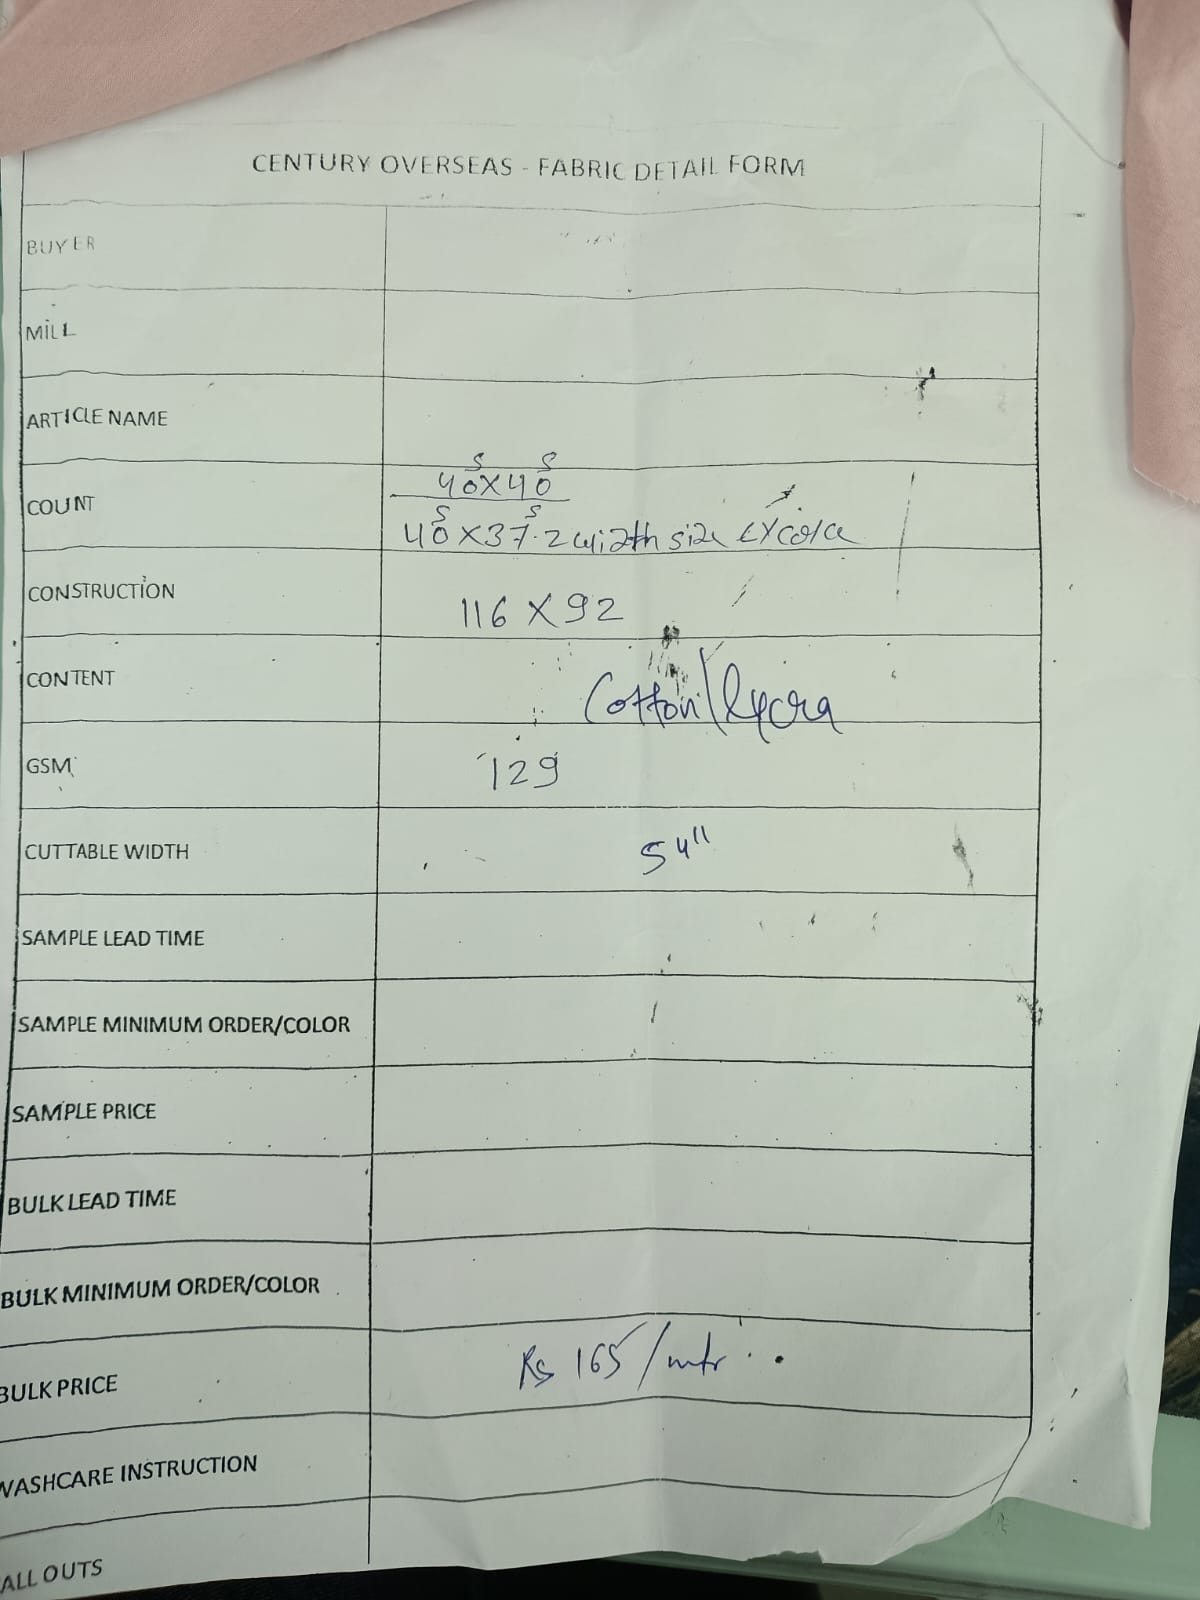 CENTURY OVERSEAS - FABRIC DETAIL FORM
BUYER
MILL
ARTICLE NAME
COUNT
40s X 40s
40s X 37s.2 width size Lycara
CONSTRUCTION
116 X 92
CONTENT
Cotton/lycra
GSM
129
CUTTABLE WIDTH
54"
SAMPLE LEAD TIME
SAMPLE MINIMUM ORDER/COLOR
SAMPLE PRICE
BULK LEAD TIME
BULK MINIMUM ORDER/COLOR
BULK PRICE
Rs 165/mtr
WASHCARE INSTRUCTION
ALL OUTS